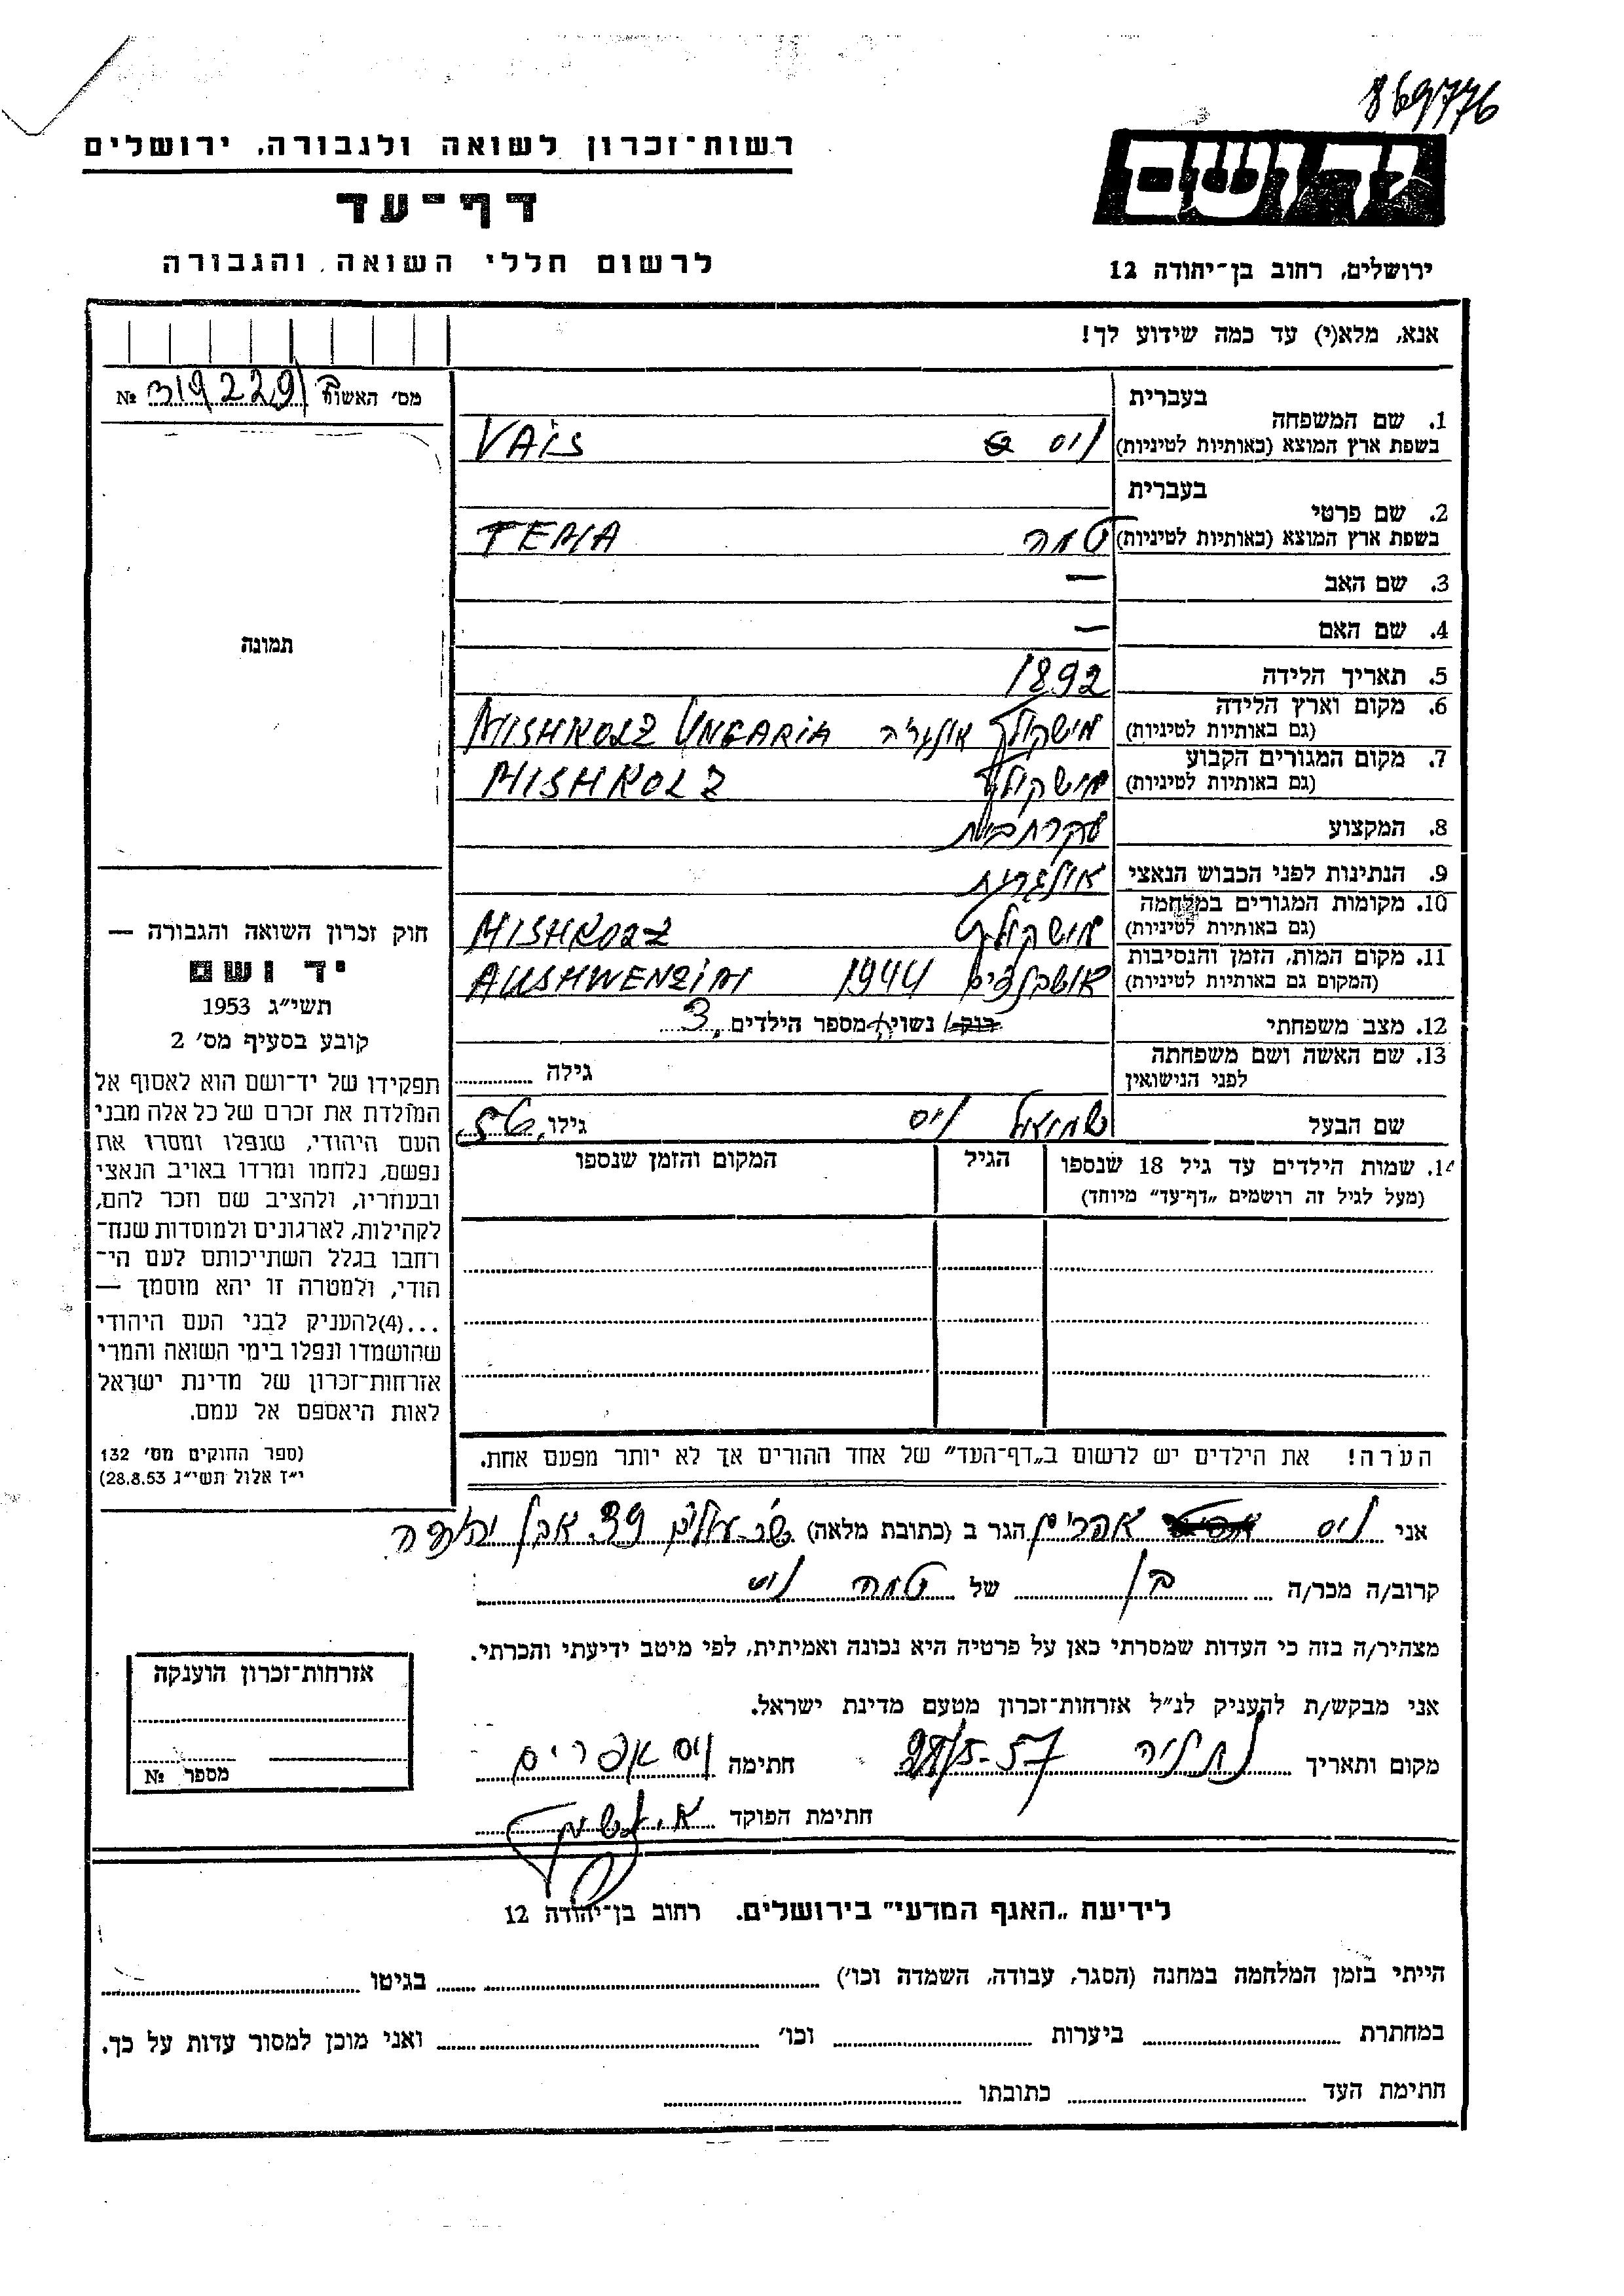 869776
רשות־זכרון לשואה ולגבורה, ירושלים
דף־עד
לרשום חללי השואה והגבורה
יד ושם
ירושלים, רחוב בן־יהודה 12
אנא, מלא(י) עד כמה שידוע לך!
מס׳ האשה 319229 №
תמונה
בעברית
1. שם המשפחה
בשפת ארץ המוצא (באותיות לטיניות) ויס VAiS
בעברית
2. שם פרטי
בשפת ארץ המוצא (באותיות לטיניות) טמה TEMA
3. שם האב —
4. שם האם —
5. תאריך הלידה 1892
6. מקום וארץ הלידה
(גם באותיות לטיניות) מישקולץ אונגריה MISHKOLZ UNGARIA
7. מקום המגורים הקבוע
(גם באותיות לטיניות) מישקולץ MISHKOLZ
8. המקצוע עקרת בית
9. הנתינות לפני הכבוש הנאצי אונגרית
10. מקומות המגורים במלחמה
(גם באותיות לטיניות) מישקולץ MISHKOLZ
11. מקום המות, הזמן והנסיבות
(המקום גם באותיות לטיניות) אושבנצים 1944 AUSHWENZiM
12. מצב משפחתי רוק/ נשוי/ מספר הילדים 3
13. שם האשה ושם משפחתה
לפני הנישואין גילה
שם הבעל שמואל ויס גילו
14. שמות הילדים עד גיל 18 שנספו
(מעל לגיל זה רושמים „דף־עד״ מיוחד)
הגיל
המקום והזמן שנספו
חוק זכרון השואה והגבורה —
יד ושם
תשי״ג 1953
קובע בסעיף מס׳ 2
תפקידו של יד־ושם הוא לאסוף אל
המולדת את זכרם של כל אלה מבני
העם היהודי, שנפלו ומסרו את
נפשם, נלחמו ומרדו באויב הנאצי
ובעוזריו, ולהציב שם וזכר להם,
לקהילות, לארגונים ולמוסדות שנח־
רחבו בגלל השתייכותם לעם הי־
הודי, ולמטרה זו יהא מוסמך —
...(4)להעניק לבני העם היהודי
שהושמדו ונפלו בימי השואה והמרי
אזרחות־זכרון של מדינת ישראל
לאות היאספם אל עמם.
(ספר החוקים מס׳ 132
י״ז אלול תשי״ג 28.8.53)
הערה! את הילדים יש לרשום ב„דף־העד״ של אחד ההורים אך לא יותר מפעם אחת.
אני ויס אפרים הגר ב (כתובת מלאה) שכ עולים 39 אבן יהודה
קרוב/ה מכר/ה בן של טמה ויס
מצהיר/ה בזה כי העדות שמסרתי כאן על פרטיה היא נכונה ואמיתית, לפי מיטב ידיעתי והכרתי.
אני מבקש/ת להעניק לנ״ל אזרחות־זכרון מטעם מדינת ישראל.
מקום ותאריך נתניה 28/5-57 חתימה ויס אפרים
חתימת הפוקד
אזרחות־זכרון הוענקה
מספר №
לידיעת „האגף המדעי״ בירושלים. רחוב בן־יהודה 12
הייתי בזמן המלחמה במחנה (הסגר, עבודה, השמדה וכו׳) בגיטו
במחתרת ביערות וכו׳ ואני מוכן למסור עדות על כך.
חתימת העד כתובתו